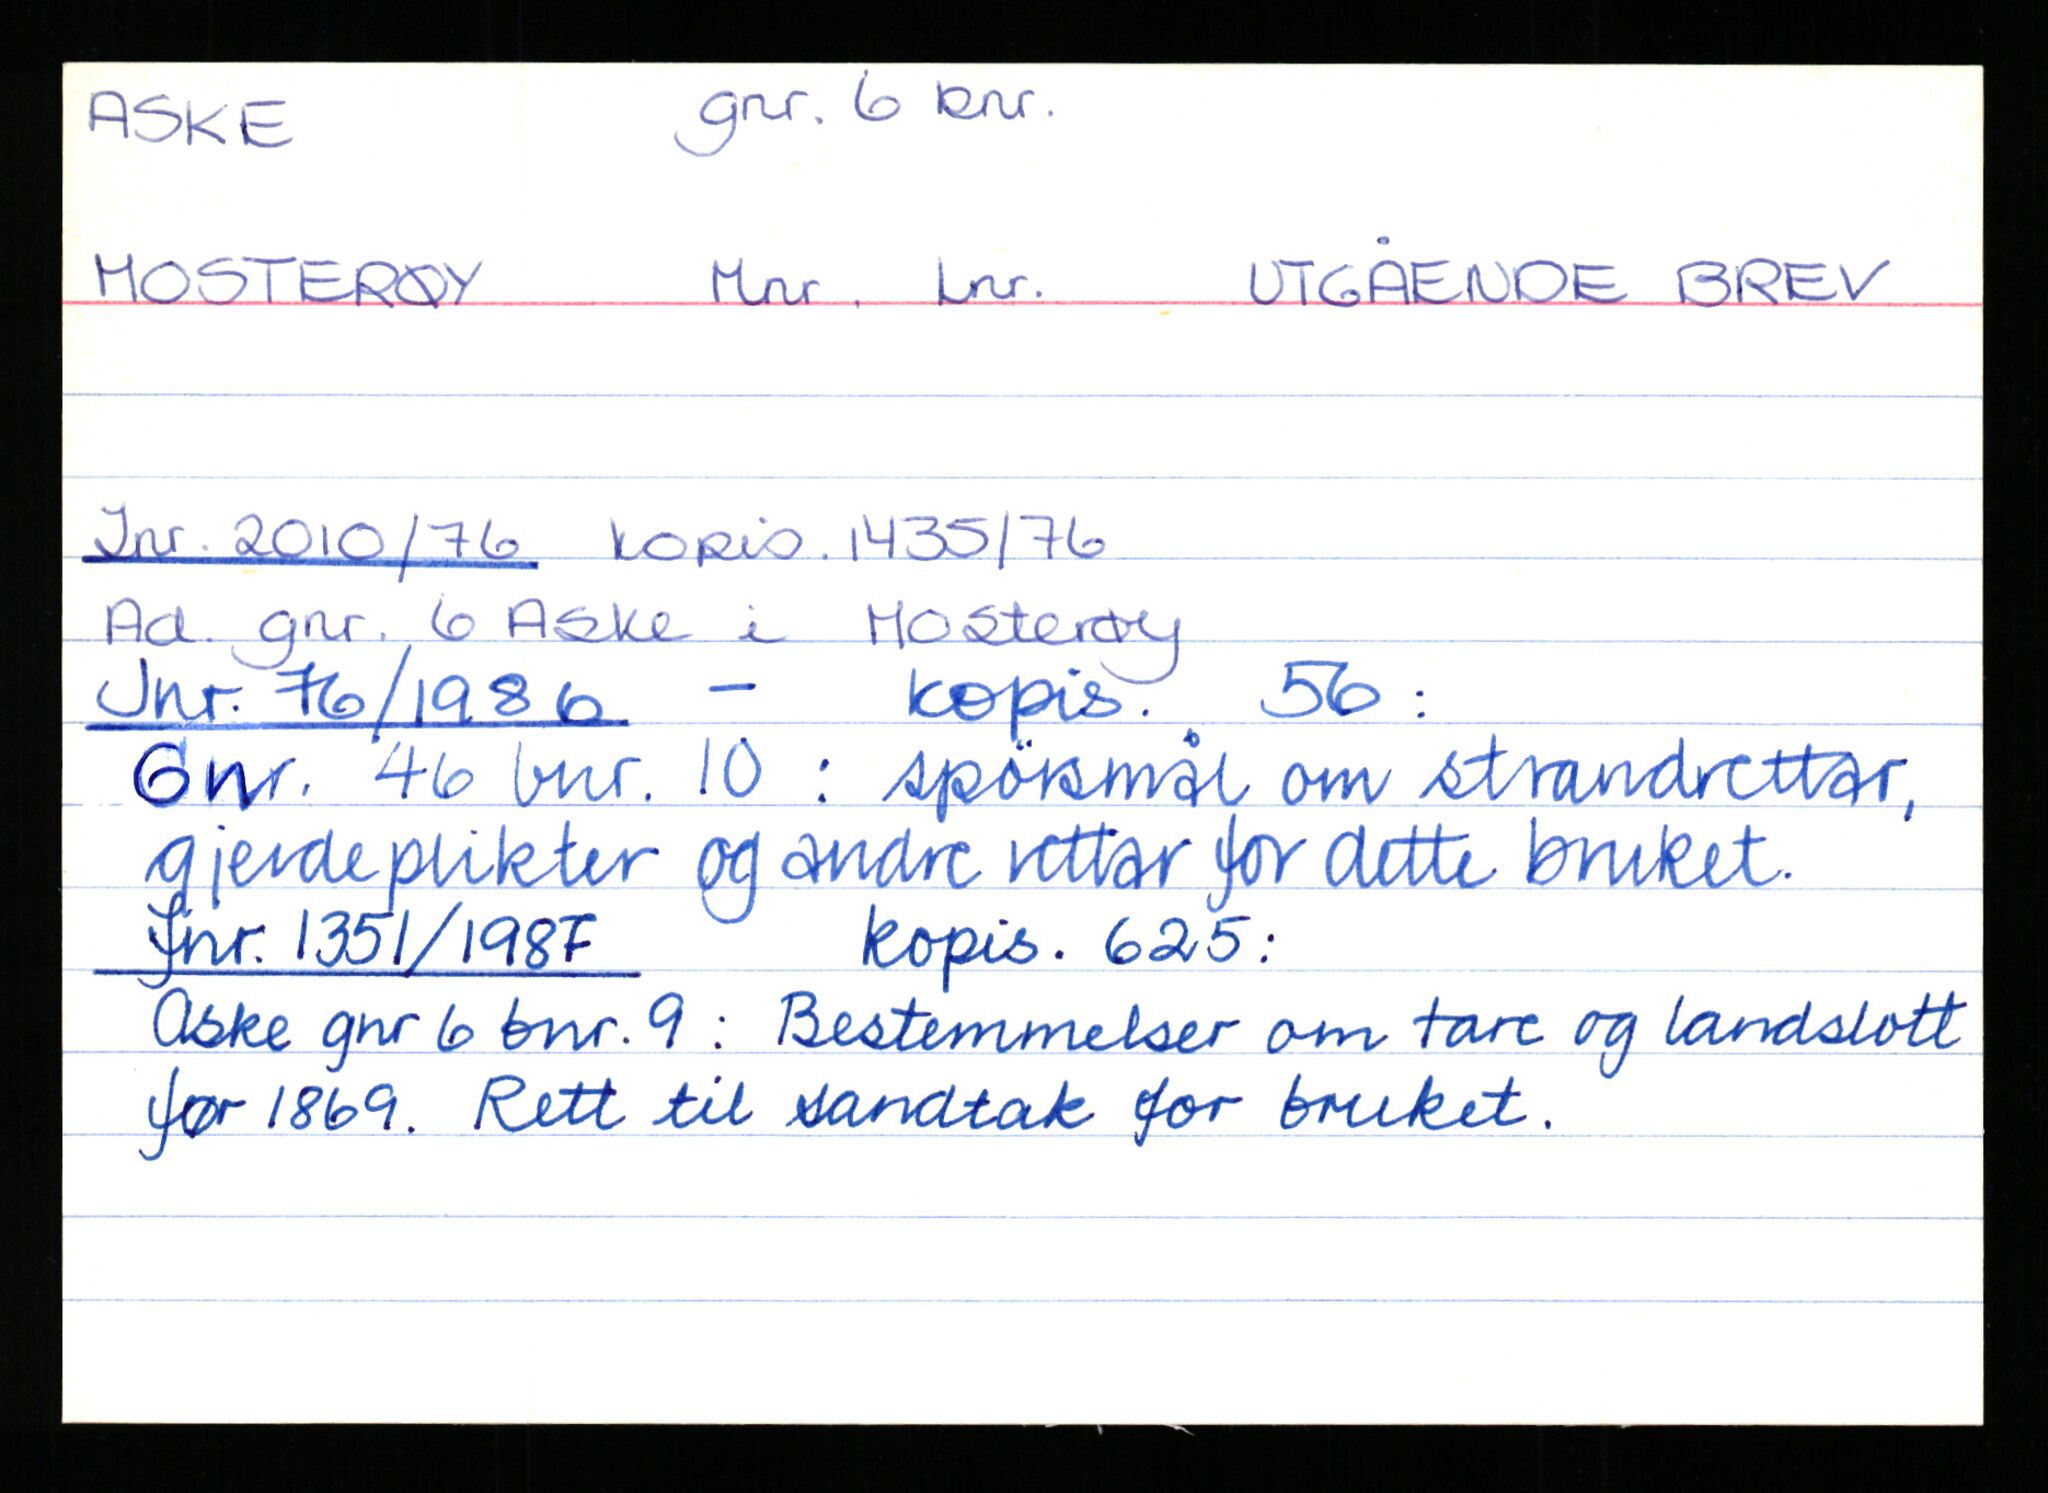 ASKE gnr. 6 bnr.
MOSTERØY Mnr. Lnr. UTGÅENDE BREV
Jnr. 2010/76 kopis. 1435/76
Ad. gnr. 6 Aske i Mosterøy
Jnr. 76/1986 - kopis. 56:
Gnr. 46 bnr. 10 : spörsmål om strandrettar,
gjerdeplikter og andre rettar for dette bruket.
Jnr. 1351/1987 kopis. 625:
Aske gnr 6 bnr. 9 : Bestemmelser om tare og landslott
før 1869. Rett til sandtak for bruket.